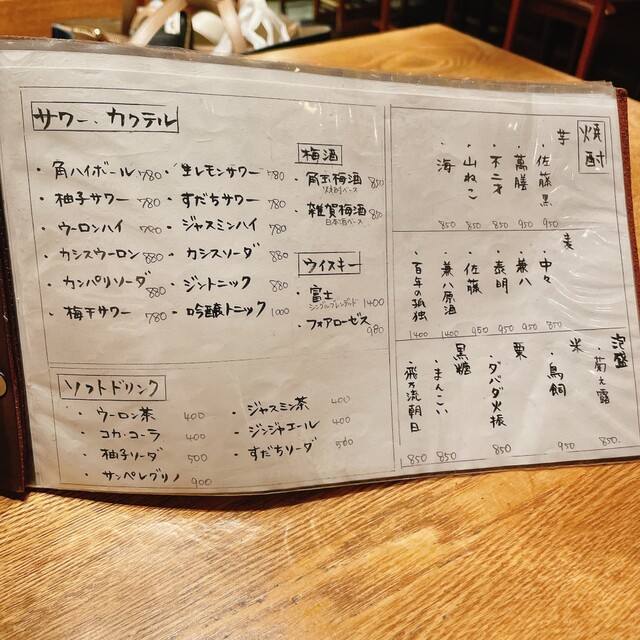 サワー・カクテル
・角ハイボール 780
・生レモンサワー 780
・柚子サワー 780
・すだちサワー 780
・ウーロンハイ 780
・ジャスミンハイ 780
・カシスウーロン 880
・カシスソーダ 880
・カンパリソーダ 880
・ジントニック 880
・梅干サワー 780
・吟醸トニック 1000
梅酒
・角玉梅酒 850
焼酎ベース
・雑賀梅酒 850
日本酒ベース
ウイスキー
・富士 1400
シングルブレンデッド
・フォアローゼス 980
ソフトドリンク
・ウーロン茶 400
・コカ・コーラ 400
・柚子ソーダ 500
・サンペレグリノ 900
・ジャスミン茶 400
・ジンジャエール 400
・すだちソーダ 500
焼酎
芋
・佐藤黒 950
・萬膳 950
・不二才 850
・山ねこ 850
・海 850
麦
・中々 850
・兼八 950
・泰明 950
・佐藤 950
・兼八原酒 1400
・百年の孤独 1400
泡盛
・菊之露 850
米
・鳥飼 950
栗
・ダバダ火振 850
黒糖
・まんこい 850
・飛乃流朝日 850